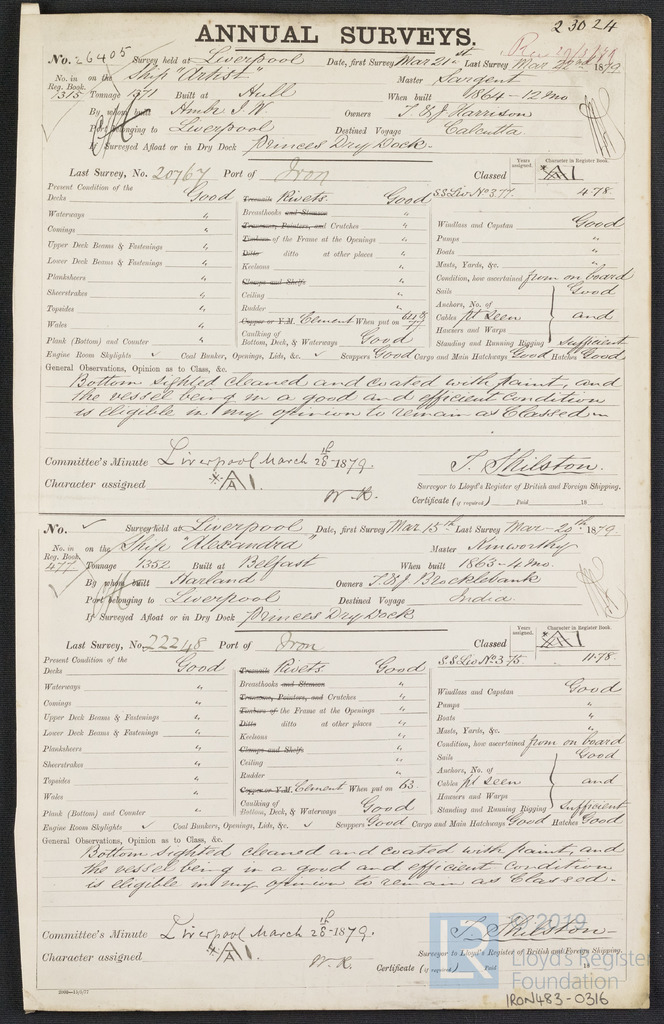 23024
ANNUAL SURVEYS.
No. 26405 Survey held at Liverpool Date, first Survey Mar 21st Last Survey Mar 22nd 1879
No. in Reg. Book. 1315 on the Ship "Artist" Master Sargent
Tonnage 1071 Built at Hull When built 1864-12mo
By whom built Humber I W. Owners T & J Harrison
Port belonging to Liverpool Destined Voyage Calcutta
If Surveyed Afloat or in Dry Dock Princes Dry Dock.
Years assigned. Character in Register Book.
Last Survey, No. 20767 Port of Iron Classed A1
SS Liv No 3.77. 4.78.
Present Condition of the
Decks Good Treenails Rivets. Good
Waterways " Breasthooks and Stemson " Windlass and Capstan Good
Comings " Transoms, Pointers, and Crutches " Pumps "
Upper Deck Beams & Fastenings " Timbers of the Frame at the Openings " Boats "
Lower Deck Beams & Fastenings " Ditto ditto at other places " Masts, Yards, &c. "
Planksheers " Keelsons " Condition, how ascertained from on board
Sheerstrakes " Clamps and Shelfs Sails Good
Topsides " Ceiling " Anchors, No. of
Wales " Rudder " Cables pt seen and
Copper or Y.M. Cement When put on Hawsers and Warps
Plank (Bottom) and Counter " Caulking of Bottom, Deck, & Waterways Good Standing and Running Rigging Sufficient
Engine Room Skylights ✓ Coal Bunker, Openings, Lids, &c. ✓ Scuppers Good Cargo and Main Hatchways Good Hatches Good
General Observations, Opinion as to Class, &c.
Bottom sighted cleaned and coated with paint, and
the vessel being in a good and efficient condition
is eligible in my opinion to remain as Classed
Committee's Minute Liverpool March 28th 1879. T. Skilston.
Character assigned A1. Surveyor to Lloyd's Register of British and Foreign Shipping.
W. R. Certificate (if required) Paid 18
No. ✓ Survey held at Liverpool Date, first Survey Mar 15th Last Survey Mar 20th 1879
No. in Reg. Book. 477 on the Ship "Alexandra" Master Kinworthy
Tonnage 1352 Built at Belfast When built 1863-4mo.
By whom built Harland Owners T & J Brocklebank
Port belonging to Liverpool Destined Voyage India
If Surveyed Afloat or in Dry Dock Princes Dry Dock
Years assigned. Character in Register Book.
Last Survey, No. 22248 Port of Iron Classed A1
S.S Liv No 3 75. 11.78.
Present Condition of the
Decks Good Treenails Rivets. Good
Waterways " Breasthooks and Stemson " Windlass and Capstan Good
Comings " Transoms, Pointers, and Crutches " Pumps "
Upper Deck Beams & Fastenings " Timbers of the Frame at the Openings " Boats "
Lower Deck Beams & Fastenings " Ditto ditto at other places " Masts, Yards, &c. "
Planksheers " Keelsons " Condition, how ascertained from on board
Sheerstrakes " Clamps and Shelfs Sails Good
Topsides " Ceiling " Anchors, No. of
Wales " Rudder " Cables pt seen and
Copper or Y.M. Cement When put on 63. Hawsers and Warps
Plank (Bottom) and Counter " Caulking of Bottom, Deck, & Waterways Good Standing and Running Rigging Sufficient
Engine Room Skylights ✓ Coal Bunkers, Openings, Lids, &c. ✓ Scuppers Good Cargo and Main Hatchways Good Hatches Good
General Observations, Opinion as to Class, &c.
Bottom sighted cleaned and coated with paint, and
the vessel being in a good and efficient condition
is eligible in my opinion to remain as Classed.
Committee's Minute Liverpool March 28th 1879. T. Skilston
Character assigned A1. Surveyor to Lloyd's Register of British and Foreign Shipping.
W. R. Certificate (if required) Paid 18
LR © 2019
Lloyd's Register
Foundation
IRON483-0316